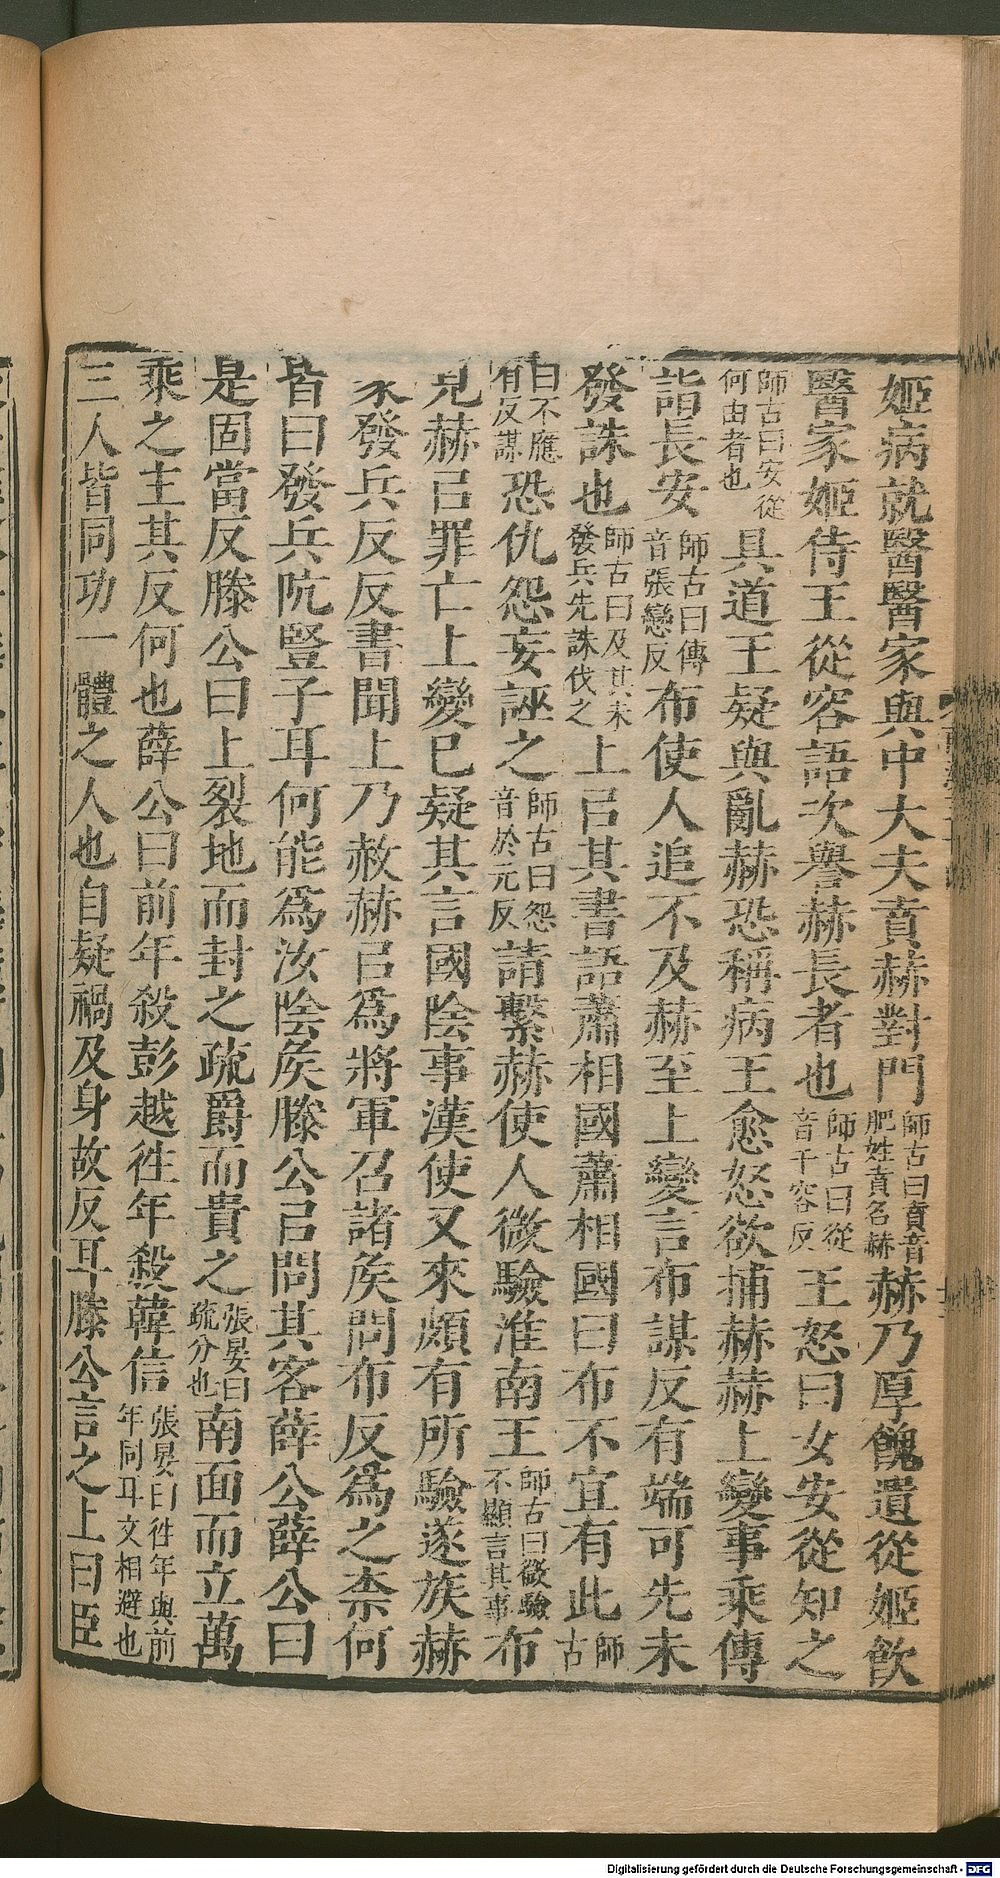 姬病就醫醫家與中大夫賁赫對門師古曰賁音肥姓賁名赫赫乃厚餽遺從姬飲
醫家姬侍王從容語次譽赫長者也師古曰從音千容反王怒曰女安從知之
師古曰安從何由者也具道王疑與亂赫恐稱病王愈怒欲捕赫赫上變事乘傳
詣長安師古曰傳音張戀反布使人追不及赫至上變言布謀反有端可先未
發誅也師古曰及其未發兵先誅伐之上㠯其書語蕭相國蕭相國曰布不宜有此師古
曰不應有反謀恐仇怨妄誣之師古曰怨音於元反請繫赫使人微驗淮南王師古曰微驗不顯言其事布
見赫㠯罪亡上變已疑其言國陰事漢使又來頗有所驗遂族赫
家發兵反反書聞上乃赦赫㠯爲將軍召諸矦問布反爲之柰何
皆曰發兵阬豎子耳何能爲汝陰矦滕公㠯問其客薛公薛公曰
是固當反滕公曰上裂地而封之疏爵而貴之張晏曰疏分也南面而立萬
乘之主其反何也薛公曰前年殺彭越徃年殺韓信張晏曰徃年與前年同耳文相避也
三人皆同功一體之人也自疑禍及身故反耳滕公言之上曰臣
Digitalisierung gefördert durch die Deutsche Forschungsgemeinschaft - DFG